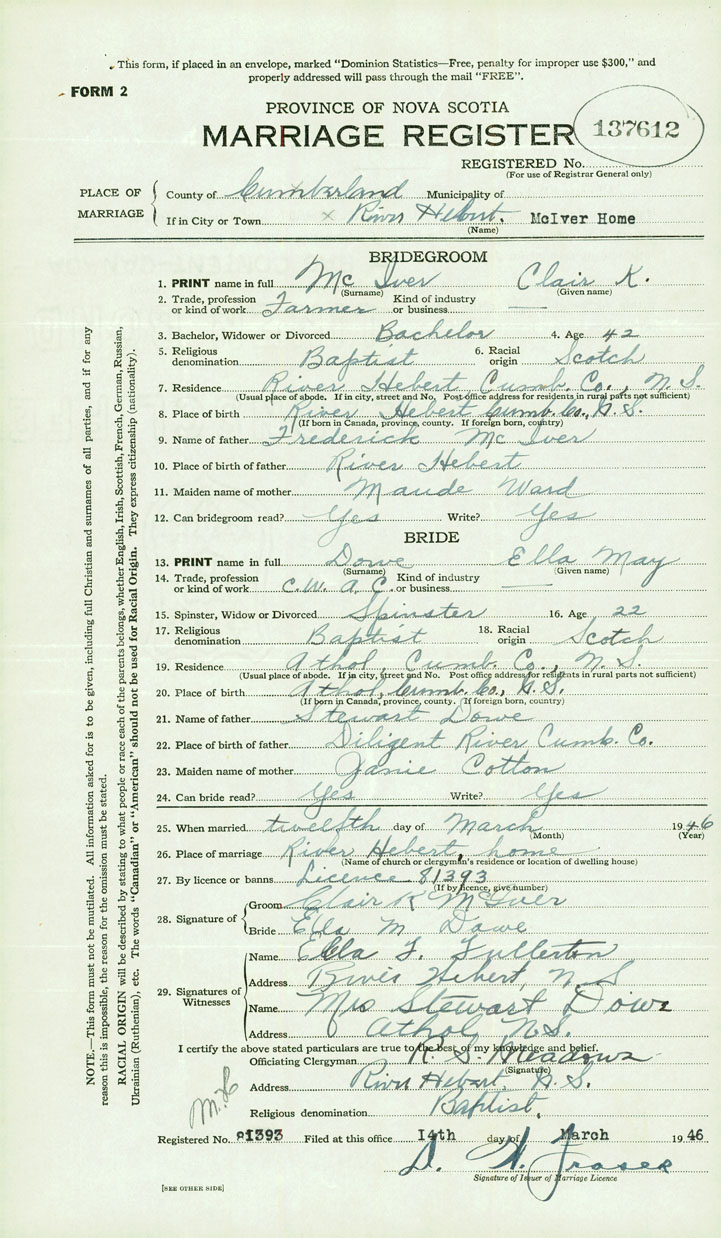 This form, if placed in an envelope, marked "Dominion Statistics—Free, penalty for improper use $300," and
properly addressed will pass through the mail "FREE".
FORM 2
PROVINCE OF NOVA SCOTIA
MARRIAGE REGISTER
137612
REGISTERED No.
(For use of Registrar General only)
PLACE OF MARRIAGE
County of Cumberland Municipality of
If in City or Town x River Hebert. McIver Home
(Name)
BRIDEGROOM
1. PRINT name in full Mc Iver Clair K.
(Surname) (Given name)
2. Trade, profession or kind of work Farmer Kind of industry or business
3. Bachelor, Widower or Divorced Bachelor 4. Age 42
5. Religious denomination Baptist 6. Racial origin Scotch
7. Residence River Hebert Cumb. Co., N.S.
(Usual place of abode. If in city, street and No. Post office address for residents in rural parts not sufficient)
8. Place of birth River Hebert Cumb. Co., N.S.
(If born in Canada, province, county. If foreign born, country)
9. Name of father Frederick Mc Iver
10. Place of birth of father River Hebert
11. Maiden name of mother Maude Ward
12. Can bridegroom read? Yes Write? Yes
BRIDE
13. PRINT name in full Dowe Ella May
(Surname) (Given name)
14. Trade, profession or kind of work C.W.A.C. Kind of industry or business
15. Spinster, Widow or Divorced Spinster 16. Age 22
17. Religious denomination Baptist 18. Racial origin Scotch
19. Residence Athol, Cumb. Co., N.S.
(Usual place of abode. If in city, street and No. Post office address for residents in rural parts not sufficient)
20. Place of birth Athol, Cumb. Co., N.S.
(If born in Canada, province, county. If foreign born, country)
21. Name of father Stewart Dowe
22. Place of birth of father Diligent River Cumb. Co.
23. Maiden name of mother Janie Cotton
24. Can bride read? Yes Write? Yes
25. When married twelfth day of March 1946
(Month) (Year)
26. Place of marriage River Hebert, home
(Name of church or clergymen's residence or location of dwelling house)
27. By licence or banns Licence 81393
(If by licence, give number)
28. Signature of Groom Clair K McIver
Bride Ella M Dowe
29. Signatures of Witnesses
Name Ella F. Fullerton
Address River Hebert, N.S
Name Mrs Stewart Dowe
Address Athol N.S.
I certify the above stated particulars are true to the best of my knowledge and belief.
Officiating Clergyman R. S. Meadows
(Signature)
Address River Hebert, N.S.
Religious denomination Baptist.
Registered No. 81393 Filed at this office 14th day of March 1946
D. H. Fraser
Signature of Issuer of Marriage Licence
[SEE OTHER SIDE]
NOTE.—This form must not be mutilated. All information asked for is to be given, including full Christian and surnames of all parties, and if for any
reason this is impossible, the reason for the omission must be stated.
RACIAL ORIGIN will be described by stating to what people or race each of the parents belongs, whether English, Irish, Scottish, French, German, Russian,
Ukrainian (Ruthenian), etc. The words "Canadian" or "American" should not be used for Racial Origin. They express citizenship (nationality).